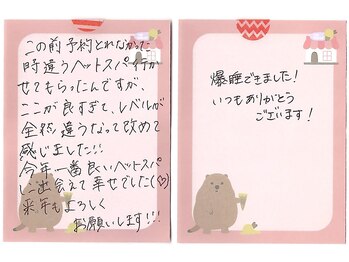 この前予約とれなかった
時違うヘットスパ行か
せてもらったんですが、
ここが良すぎて、レベルが
全然違うなって改めて
感じました!!
今年一番良いヘットスパ
に出会えて幸せでした(♡)
来年もよろしく
お願いします!!!
爆睡できました!
いつもありがとう
ございます!